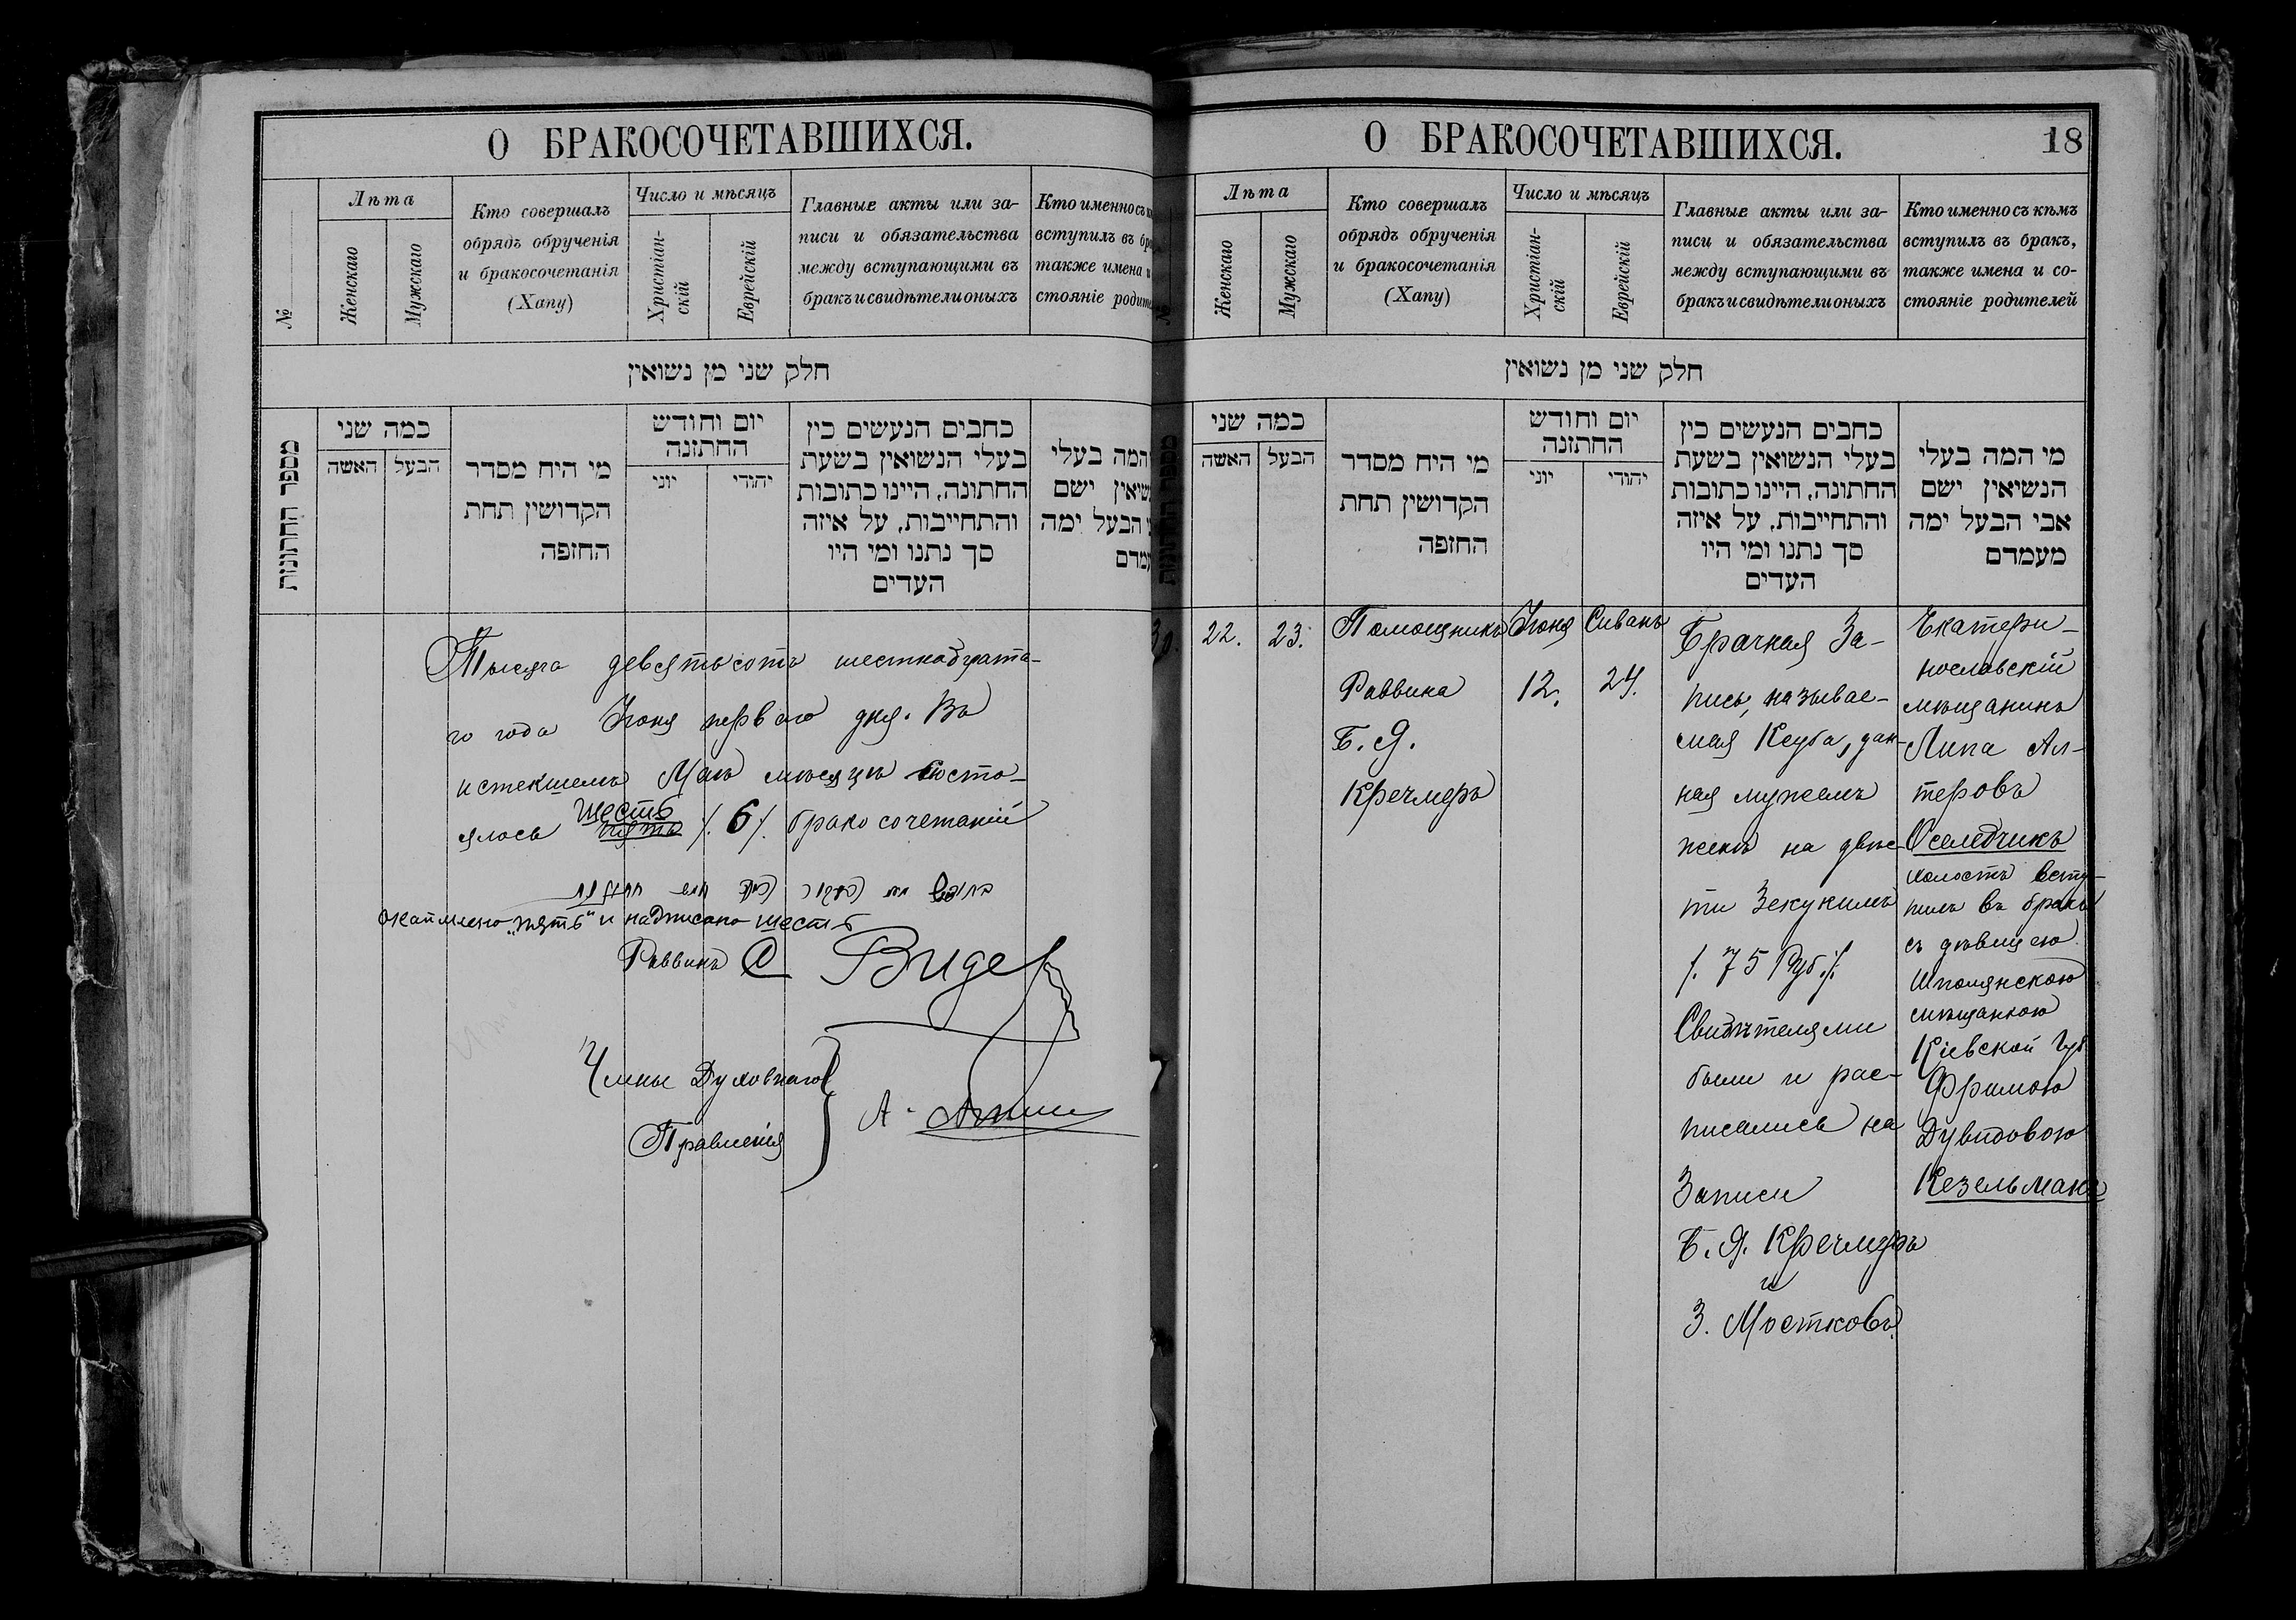 О БРАКОСОЧЕТАВШИХСЯ.
№
Лѣта
Женскаго
Мужскаго
Кто совершалъ
обрядъ обрученія
и бракосочетанія
(Хапу)
Число и мѣсяцъ
Христіан-
скій
Еврейскій
Главные акты или за-
писи и обязательства
между вступающими въ
бракъ и свидѣтели оныхъ
Кто именно съ
вступилъ въ
также имена
стояніе
חלק שני מן נשואין
מספר החתונות
כמה שני
האשה
הבעל
מי היח מסדר
הקדושין תחת
החזפה
יום וחודש
החתזנה
יוני
יהודי
כחבים הנעשים כין
בעלי הנשואין בשעת
החתונה, היינו כתובות
והתחייבות, על איזה
סך נתנו ומי היו
העדים
המה בעלי
ישם
הבעל ימה
Тысяча девятьсотъ шестнадцата-
го года Іюня перваго дня. Въ
истекшемъ Маѣ мѣсяцѣ состо-
ялось шесть пять /. 6 /. бракосочетаній
Окаймлено „пять“ и надписано шесть
Раввинъ С Видер
Члены Духовнаго
Правленія
А.
О БРАКОСОЧЕТАВШИХСЯ.
18
Лѣта
Женскаго
Мужскаго
Кто совершалъ
обрядъ обрученія
и бракосочетанія
(Хапу)
Число и мѣсяцъ
Христіан-
скій
Еврейскій
Главные акты или за-
писи и обязательства
между вступающими въ
бракъ и свидѣтели оныхъ
Кто именно съ кѣмъ
вступилъ въ бракъ,
также имена и со-
стояніе родителей
חלק שני מן נשואין
כמה שני
האשה
הבעל
מי היח מסדר
הקדושין תחת
החזפה
יום וחודש
החתזנה
יוני
יהודי
כחבים הנעשים כין
בעלי הנשואין בשעת
החתונה, היינו כתובות
והתחייבות, על איזה
סך נתנו ומי היו
העדים
מי המה בעלי
הנשיאין ישם
אבי הבעל ימה
מעמדם
30.
22.
23.
Помощникъ
Раввина
Б. Я.
Кречмеръ
Іюня
12.
Сиванъ
24.
Брачная За-
пись, называе-
мая Ксуба, дан-
ная мужемъ
женѣ на двѣс-
ти Зекукимъ
/. 75 Руб. /.
Свидѣтелями
были и рас-
писались на
Записи
Б. Я. Кречмеръ
и
З. Мостковъ.
Екатери-
нославскій
мѣщанинъ
Липа Ал-
теровъ
Оселедчикъ
холостъ всту-
пилъ въ бракъ
съ дѣвицею
Шполянскою
мѣщанкою
Кіевской Губ
Фримою
Дувидовою
Кезельманъ